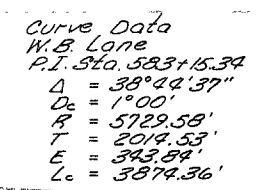 Curve Data
W.B. Lane
P.I. Sta. 583+15.34
Δ = 38°44'37"
Dc = 1°00'
R = 5729.58'
T = 2014.53'
E = 343.84'
Lc = 3874.36'